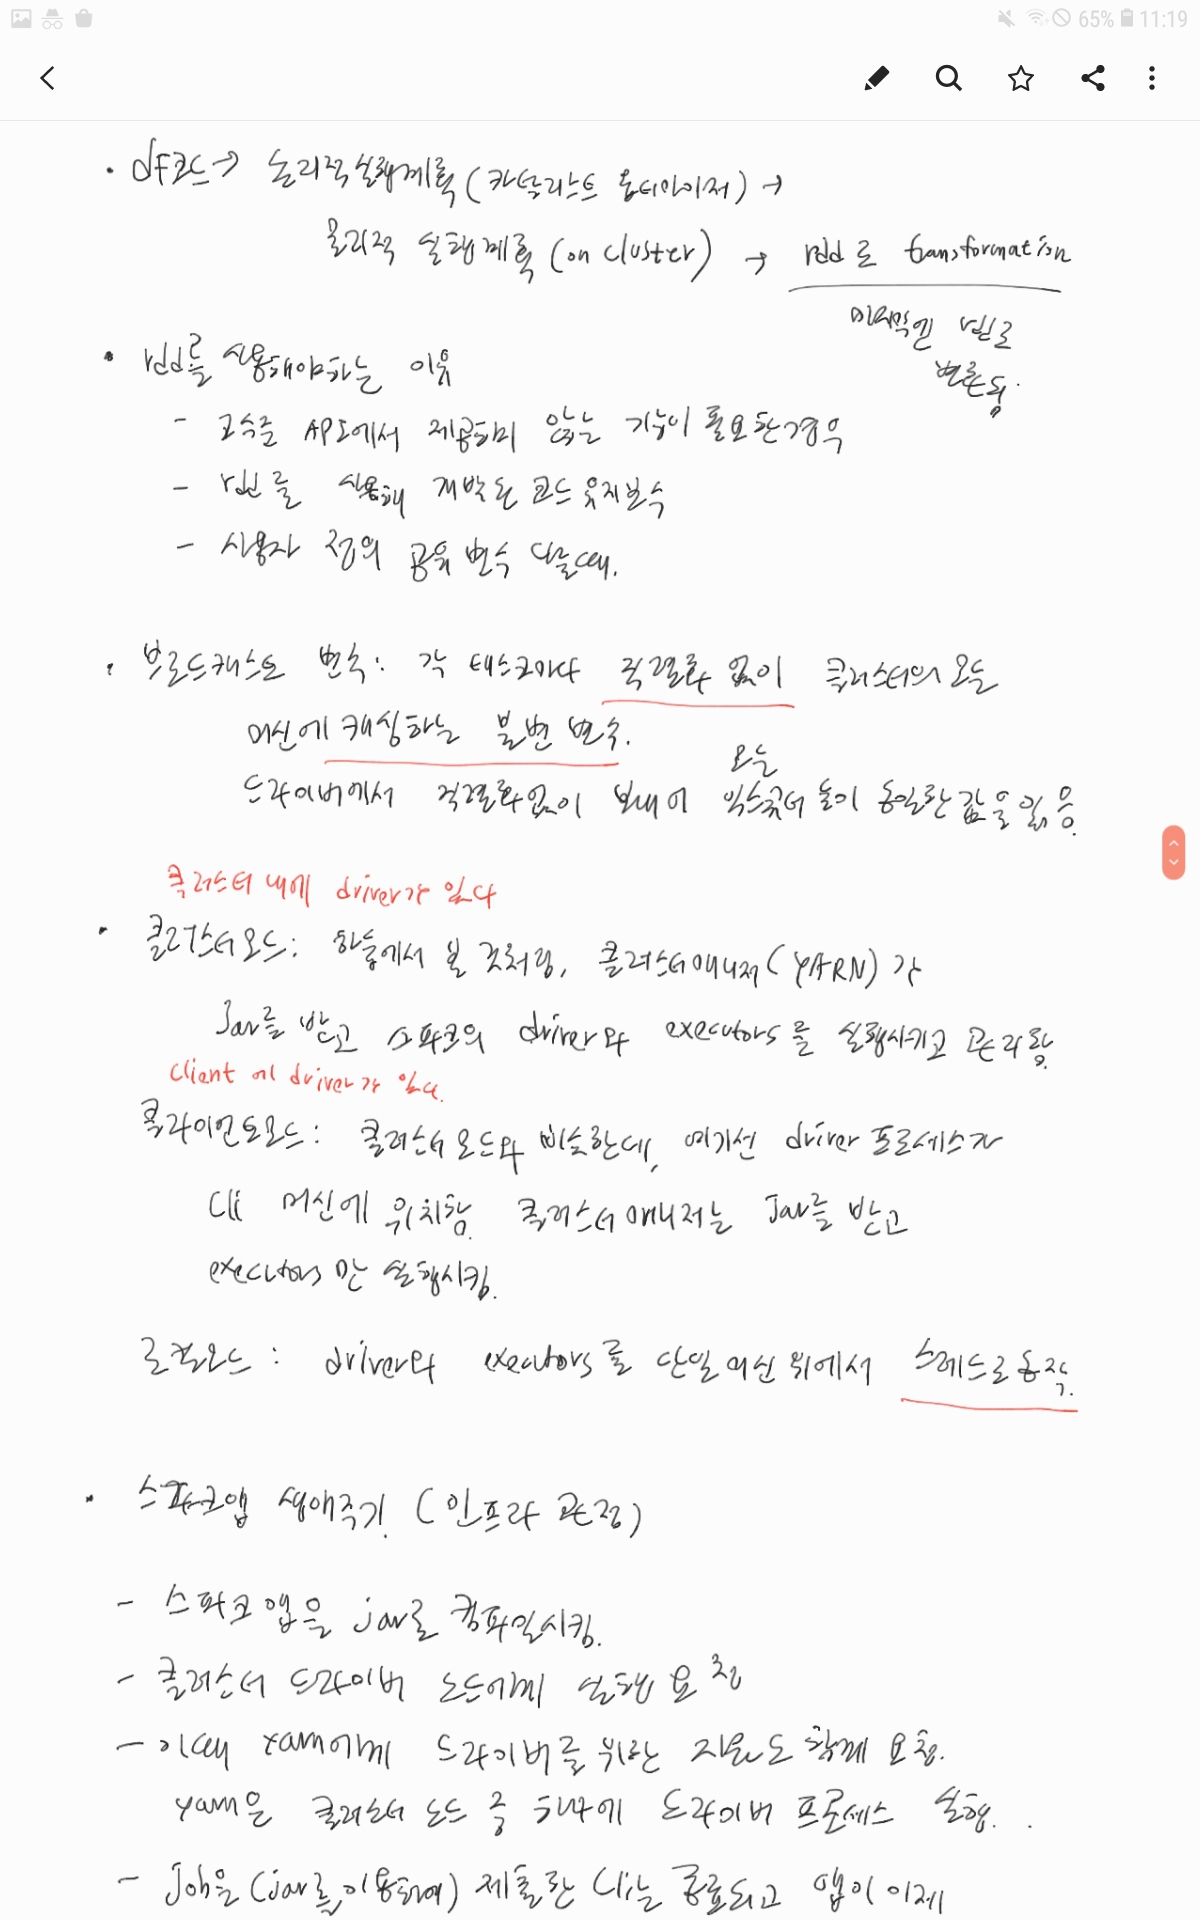 65% 11:19
• df코드→ 논리적실행계획(카탈리스트 옵티마이저) →
물리적 실행계획(on cluster) → rdd로 transformation
마지막엔 rdd로
변환됨.
• rdd를 사용해야하는 이유
- 고수준 API에서 제공하지 않는 기능이 필요한경우
- rdd를 사용해 개발된 코드 유지보수
- 사용자 정의 공유 변수 다룰때.
• 브로드캐스트 변수: 각 태스크마다 직렬화 없이 클러스터의 모든
머신에 캐싱하는 불변 변수.
모든
드라이버에서 직렬화없이 보내어 익스큐터 들이 동일한 값을 읽음.
클러스터 내에 driver가 있다
• 클러스터모드: 하둡에서 본 것처럼, 클러스터매니저(YARN)가
Jar를 받고 스파크의 driver와 executors를 실행시키고 관리함.
client에 driver가 있다.
클라이언트모드: 클러스터모드와 비슷한데, 여기선 driver 프로세스가
Cli 머신에 위치함. 클러스터매니저는 Jar를 받고
executors만 실행시킴.
로컬모드: driver와 executors를 단일머신위에서 스레드로동작.
• 스파크앱 생애주기. (인프라 관점)
- 스파크앱을 jar로 컴파일시킴.
- 클러스터 드라이버 노드에게 실행 요청
- 이때 yarn에게 드라이버를 위한 자원도 함께 요청.
yarn은 클러스터 노드 중 하나에 드라이버 프로세스 실행.
- Job을(jar를 이용하여) 제출한 Cli는 종료되고 앱이 이제